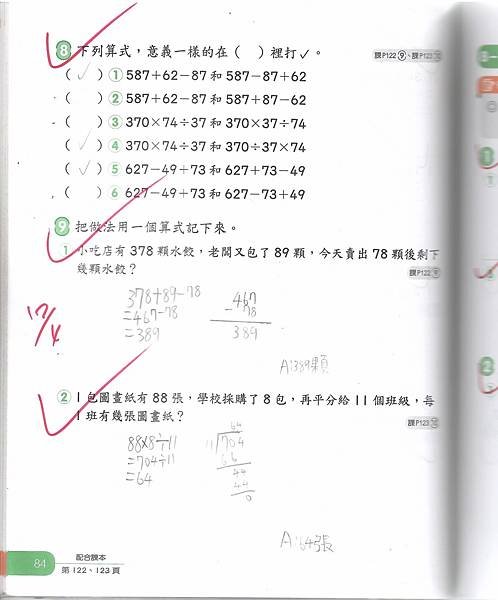 8 下列算式，意義一樣的在（　）裡打✓。
課P122⑨、課P123⑩
（✓）① 587+62−87 和 587−87+62
（　）② 587+62−87 和 587+87−62
（　）③ 370×74÷37 和 370×37÷74
（✓）④ 370×74÷37 和 370÷37×74
（✓）⑤ 627−49+73 和 627+73−49
（　）⑥ 627−49+73 和 627−73+49
9 把做法用一個算式記下來。
① 小吃店有 378 顆水餃，老闆又包了 89 顆，今天賣出 78 顆後剩下
幾顆水餃？
課P122⑨
378+89−78
=467−78
=389
467
− 78
389
A:389顆
12/4
② 1 包圖畫紙有 88 張，學校採購了 8 包，再平分給 11 個班級，每
1 班有幾張圖畫紙？
課P123⑩
88×8÷11
=704÷11
=64
64
11 704
66
44
44
0
A:64張
84
配合課本
第 122、123 頁